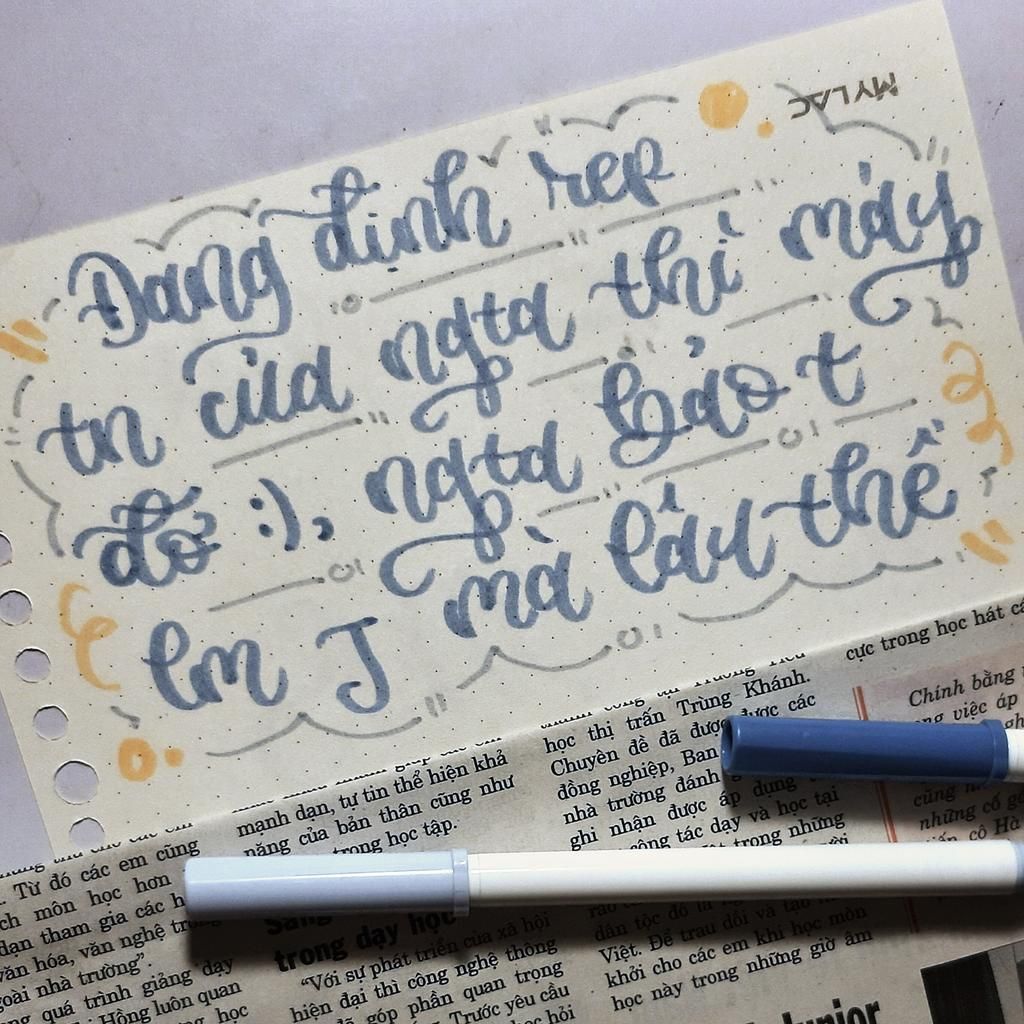 MYLAC
Đang định rep
tn của ngta thì máy
đơ :), ngta bảo t
lm J mà lâu thế
cực trong học hát
học thị trấn Trùng Khánh.
Chuyên đề đã được các
đồng nghiệp, Ban
nhà trường đánh
ghi nhận được áp dụng
công tác dạy và học tại
trong những
mạnh dạn, tự tin thể hiện khả
năng của bản thân cũng như
trong học tập.
Chính bằng
việc áp
cũng
những cố
cô Hà
các em cũng
Từ đó các em cũng
môn học hơn
dạn tham gia các
văn hóa, văn nghệ
nhà trường".
quá trình giảng dạy
Hồng luôn quan
học
trong dạy học
"Với sự phát triển của xã hội
hiện đại thì công nghệ thông
góp phần quan trọng
Trước yêu cầu
học hỏi
dân tộc đó là
Việt. Để trau dồi và tạo
khởi cho các em khi học môn
học này trong những giờ âm